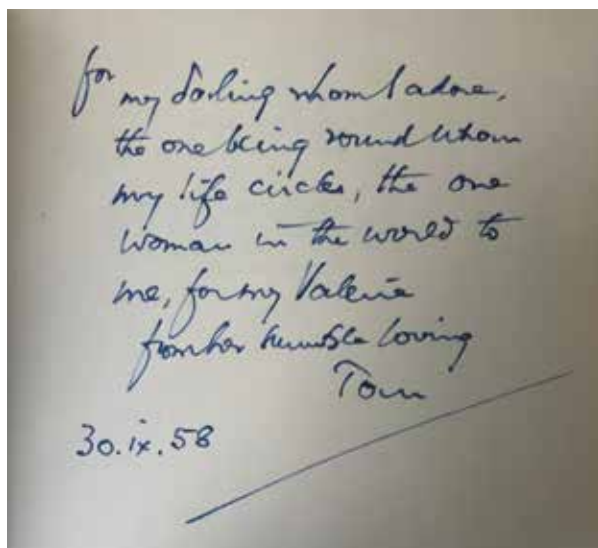 for my darling whom I adore,
the one being round whom
my life circles, the one
woman in the world to
me, for my Valerie
from her humble loving
Tom
30.ix.58